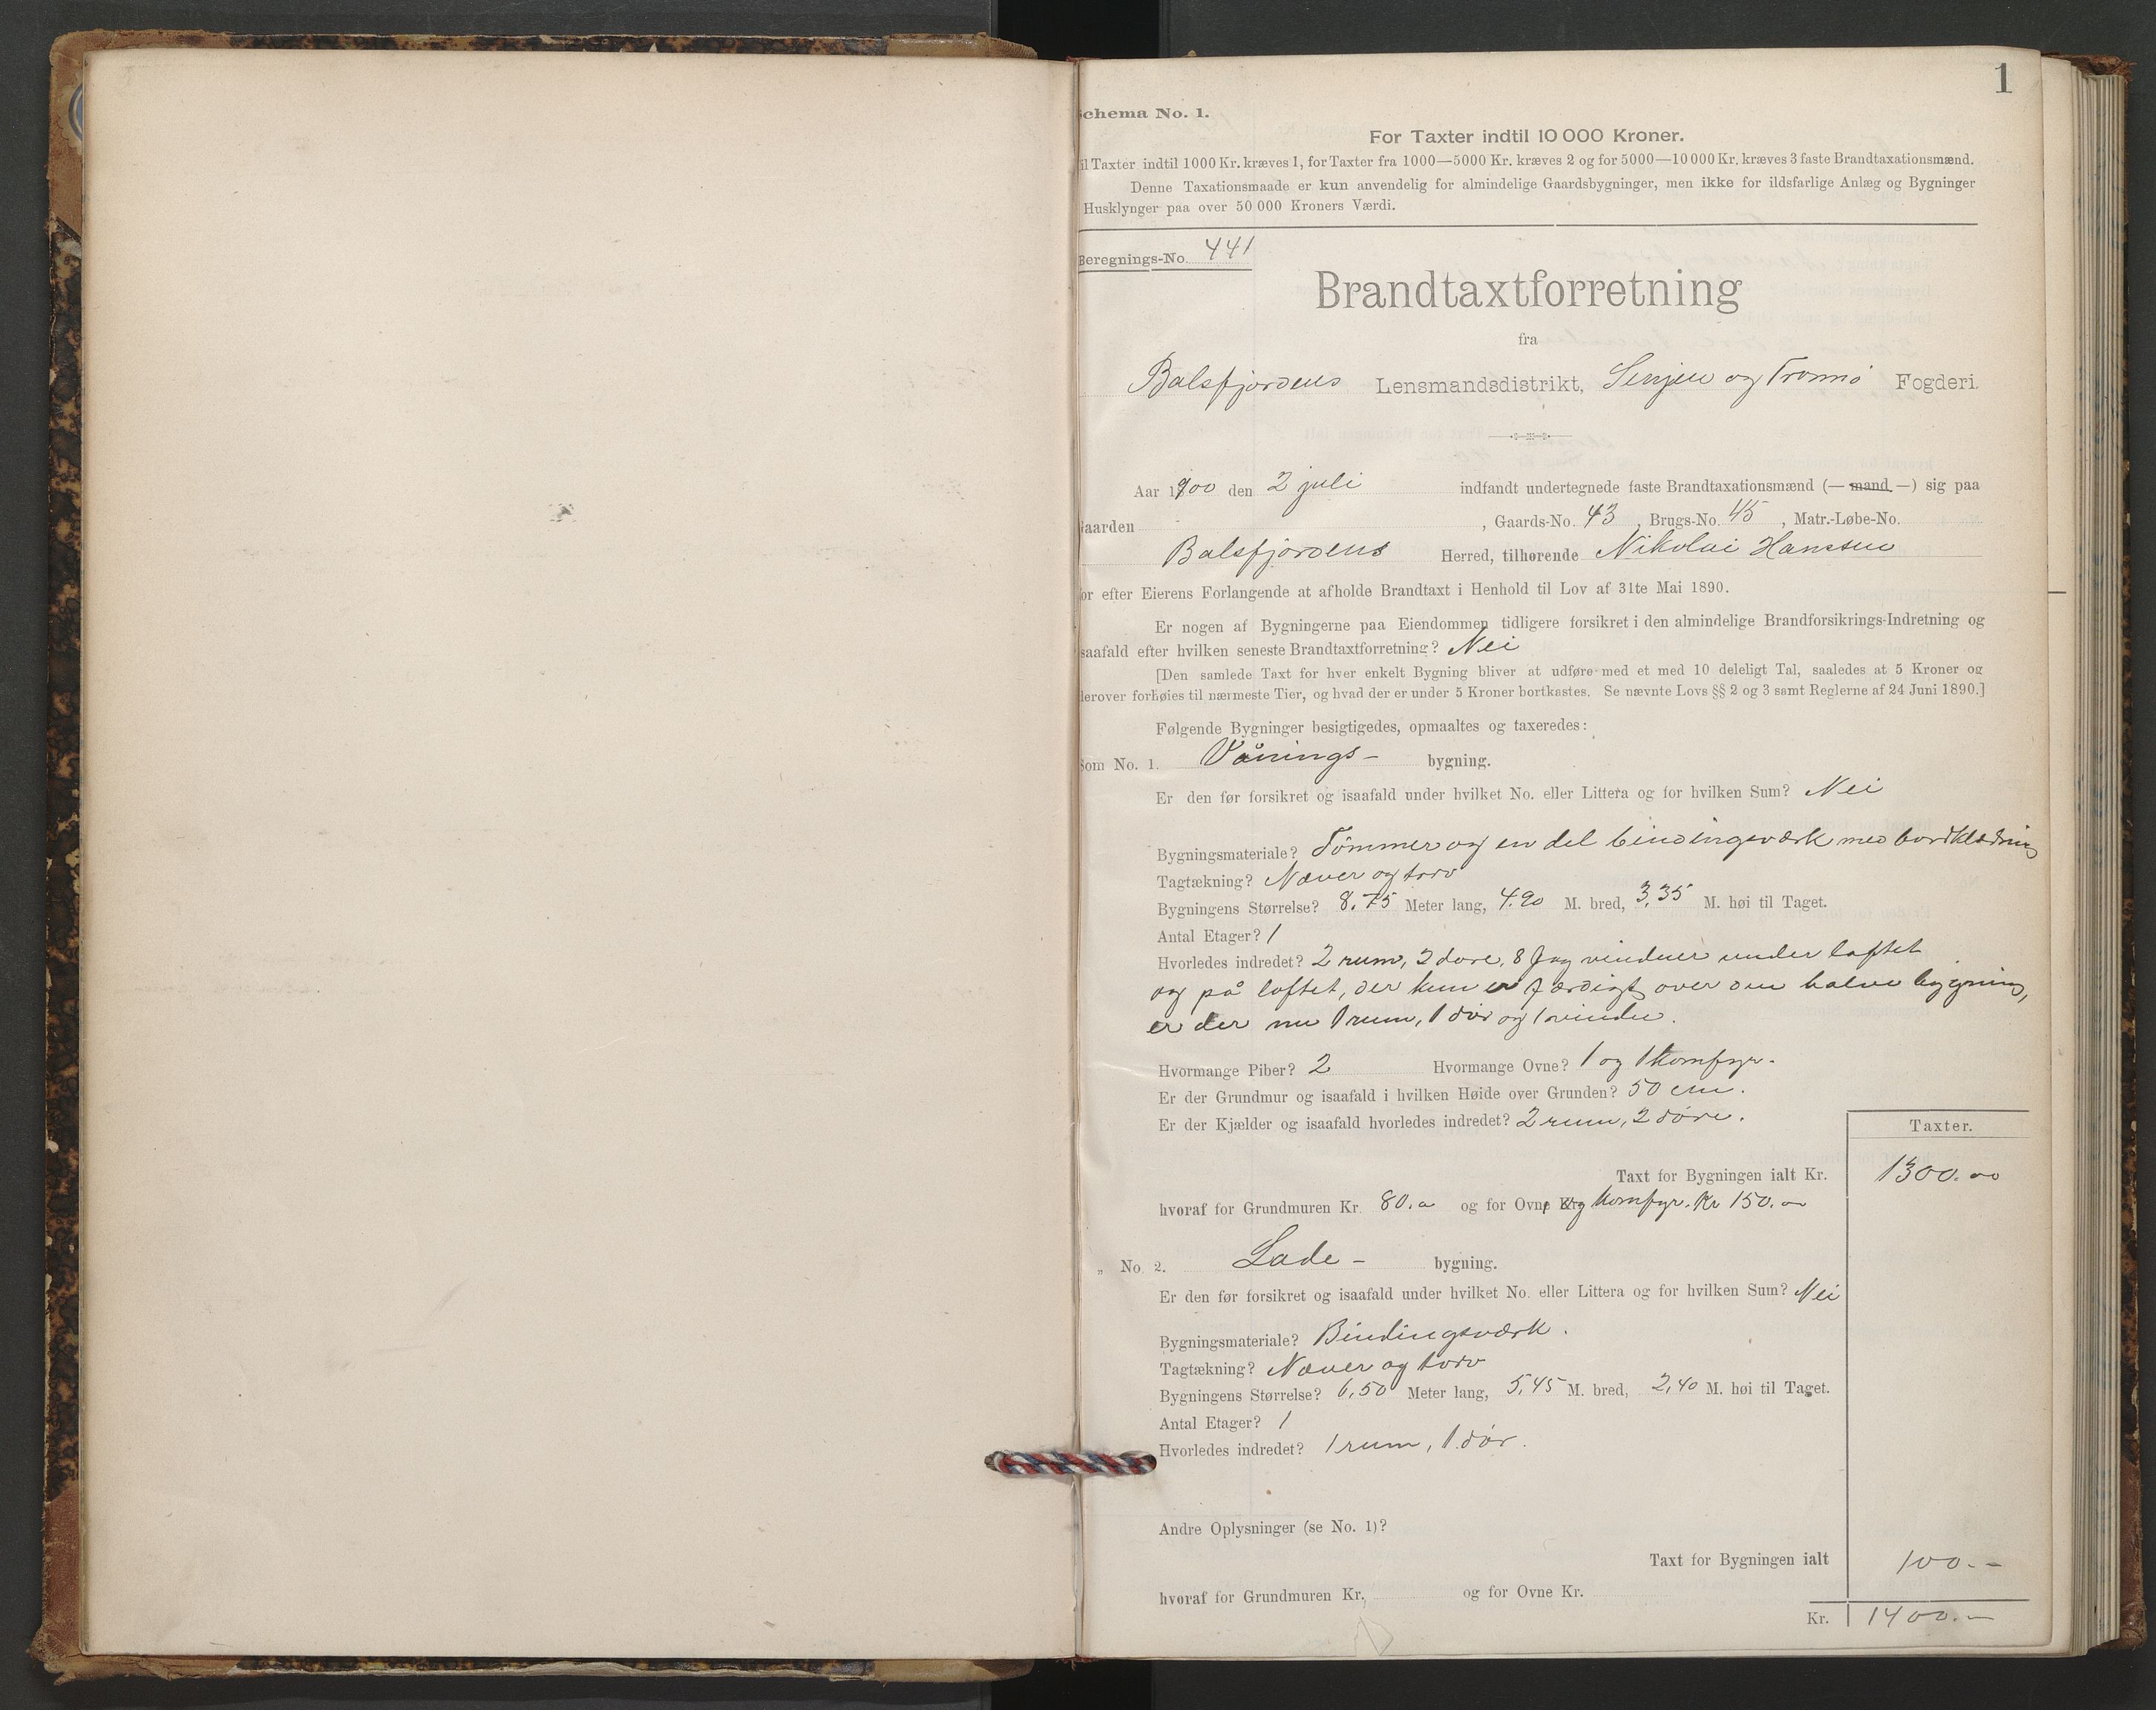 1
chema No. 1.
For Taxter indtil 10 000 Kroner.
il Taxter indtil 1000 Kr. kræves 1, for Taxter fra 1000—5000 Kr. kræves 2 og for 5000—10 000 Kr. kræves 3 faste Brandtaxationsmænd.
Denne Taxationsmaade er kun anvendelig for almindelige Gaardsbygninger, men ikke for ildsfarlige Anlæg og Bygninger
Husklynger paa over 50 000 Kroners Værdi.
Beregnings-No. 441
Brandtaxtforretning
fra
Balsfjordens Lensmandsdistrikt, Senjen og Tromsø Fogderi.
Aar 1900 den 2 juli indfandt undertegnede faste Brandtaxationsmænd (— mand —) sig paa
aarden , Gaards-No. 43 , Brugs-No. 45 , Matr.-Løbe-No.
Balsfjordens Herred, tilhørende Nikolai Hanssen
or efter Eierens Forlangende at afholde Brandtaxt i Henhold til Lov af 31te Mai 1890.
Er nogen af Bygningerne paa Eiendommen tidligere forsikret i den almindelige Brandforsikrings-Indretning og
saafald efter hvilken seneste Brandtaxtforretning? Nei
[Den samlede Taxt for hver enkelt Bygning bliver at udføre med et med 10 deleligt Tal, saaledes at 5 Kroner og
derover forhøies til nærmeste Tier, og hvad der er under 5 Kroner bortkastes. Se nævnte Lovs §§ 2 og 3 samt Reglerne af 24 Juni 1890.]
Følgende Bygninger besigtigedes, opmaaltes og taxeredes:
Som No. 1. Vånings- bygning.
Er den før forsikret og isaafald under hvilket No. eller Littera og for hvilken Sum? Nei
Bygningsmateriale? Tømmer og en del bindingsværk med bordklædning
Tagtækning? Næver og torv
Bygningens Størrelse? 8.75 Meter lang, 4.90 M. bred, 3.35 M. høi til Taget.
Antal Etager? 1
Hvorledes indredet? 2 rum, 2 døre, 8 fag vinduer under loftet
og på loftet, der kun er færdigt over den halve bygning,
er der nu 1 rum, 1 dør og 1 vindu.
Hvormange Piber? 2 Hvormange Ovne? 1 og 1 komfyr.
Er der Grundmur og isaafald i hvilken Høide over Grunden? 50 cm.
Er der Kjælder og isaafald hvorledes indredet? 2 rum, 2 døre.
Taxter.
Taxt for Bygningen ialt Kr. 1300.00
hvoraf for Grundmuren Kr. 80.00 og for Ovne Kr. og komfyr. Kr 150.00
„ No. 2. Lade- bygning.
Er den før forsikret og isaafald under hvilket No. eller Littera og for hvilken Sum? Nei
Bygningsmateriale? Bindingsværk.
Tagtækning? Næver og torv
Bygningens Størrelse? 6,50 Meter lang, 5,45 M. bred, 2,40 M. høi til Taget.
Antal Etager? 1
Hvorledes indredet? 1 rum, 1 dør.
Andre Oplysninger (se No. 1)?
Taxt for Bygningen ialt 100.-
hvoraf for Grundmuren Kr. og for Ovne Kr.
Kr. 1400.-